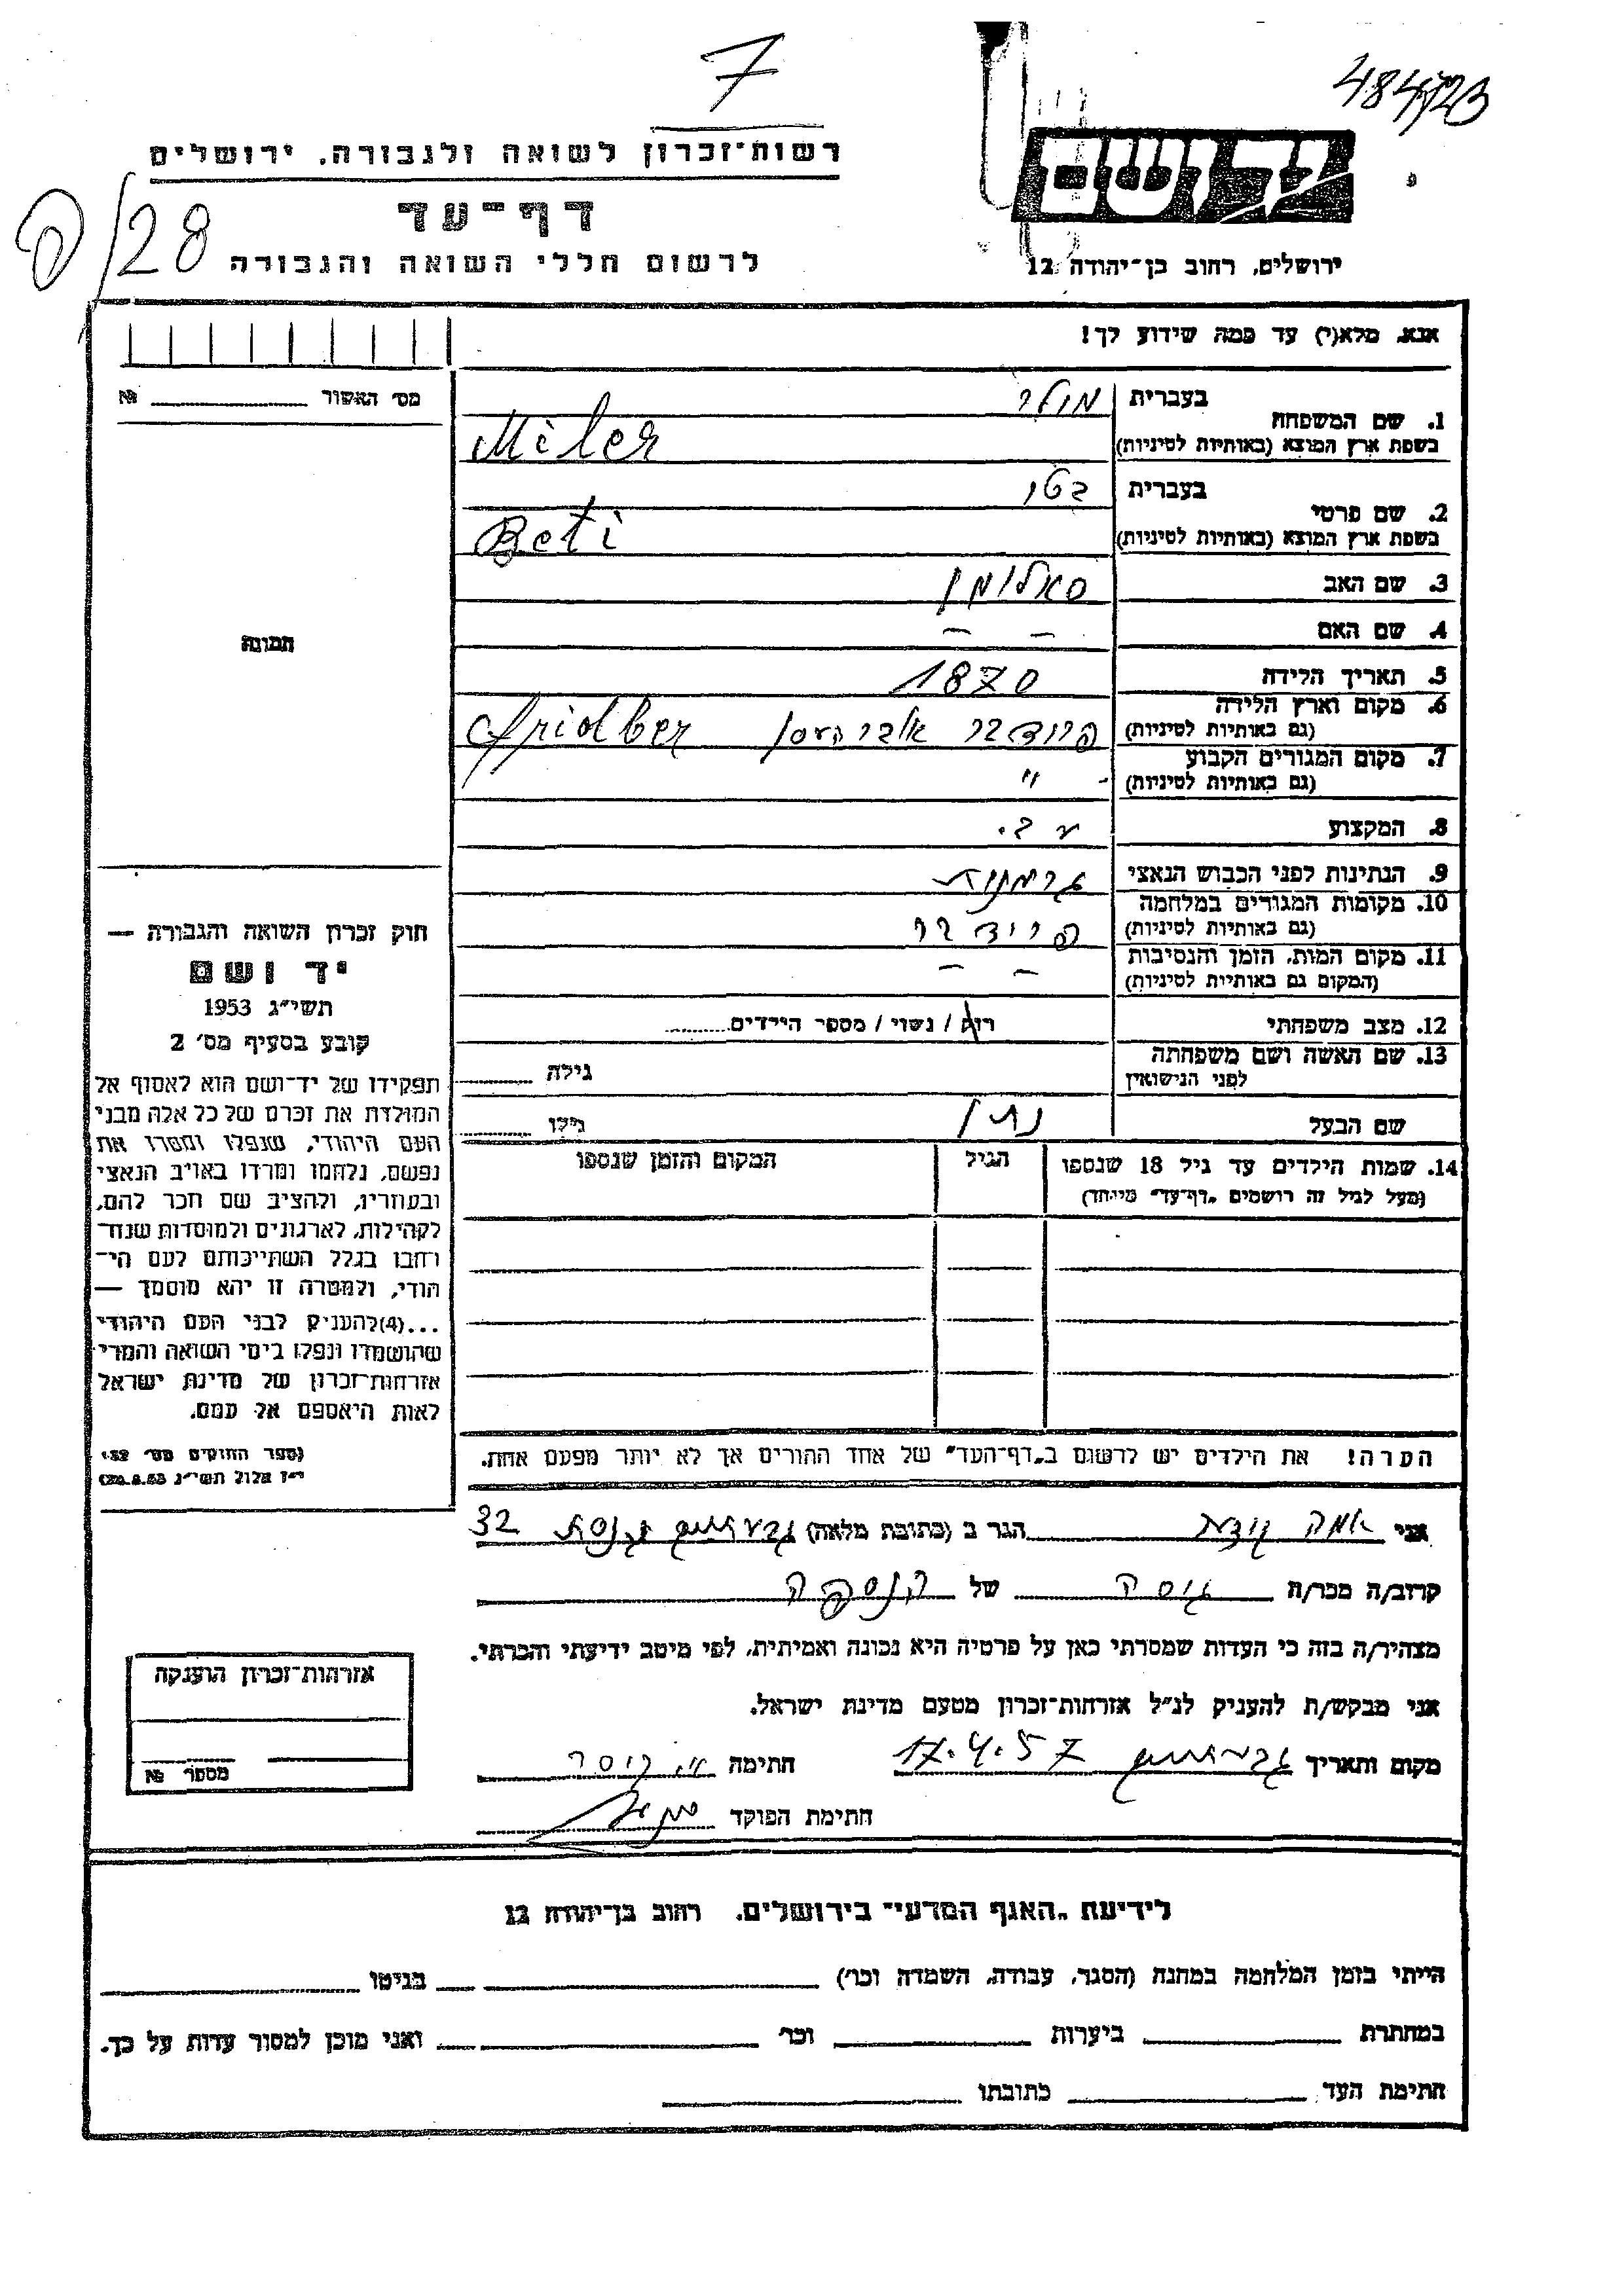 7
484723
רשות־זכרון לשואה ולגבורה, ירושלים
יד ושם
פ/28
דף־עד
לרשום חללי השואה והגבורה
ירושלים, רחוב בן־יהודה 12
אנא, מלא(י) עד כמה שידוע לך!
מס׳ האשור № ........
1. שם המשפחה
בעברית מילר
בשפת ארץ המוצא (באותיות לטיניות) Miler
2. שם פרטי
בעברית בטי
בשפת ארץ המוצא (באותיות לטיניות) Beti
3. שם האב סאלומן
4. שם האם — —
5. תאריך הלידה 1870
6. מקום וארץ הלידה
(גם באותיות לטיניות) פרידבר Fridber
7. מקום המגורים הקבוע
(גם באותיות לטיניות) - " -
8. המקצוע עב.
9. הנתינות לפני הכבוש הנאצי גרמנית
10. מקומות המגורים במלחמה
(גם באותיות לטיניות) פרידבר
11. מקום המות, הזמן והנסיבות
(המקום גם באותיות לטיניות) — —
12. מצב משפחתי רוק / נשוי / מספר הילדים........
13. שם האשה ושם משפחתה
לפני הנישואין
גילה ........
שם הבעל נתן גילו ........
14. שמות הילדים עד גיל 18 שנספו הגיל המקום והזמן שנספו
(מעל לגיל זה רושמים „דף־עד” מיוחד)
הערה! את הילדים יש לרשום ב„דף־העד” של אחד ההורים אך לא יותר מפעם אחת.
תמונה
חוק זכרון השואה והגבורה —
יד ושם
תשי״ג 1953
קובע בסעיף מס׳ 2
תפקידו של יד־ושם הוא לאסוף אל
המולדת את זכרם של כל אלה מבני
העם היהודי, שנפלו ומסרו את
נפשם, נלחמו ומרדו באויב הנאצי
ובעוזריו, ולהציב שם וזכר להם,
לקהילות, לארגונים ולמוסדות שנח־
רבו בגלל השתייכותם לעם הי־
הודי, ולמטרה זו יהא מוסמך —
...(4) להעניק לבני העם היהודי
שהושמדו ונפלו בימי השואה והמרי
אזרחות־זכרון של מדינת ישראל
לאות היאספם אל עמם.
(ספר החוקים מס׳ 132,
י״ז אלול תשי״ג 28.8.53)
אני הגר ב (כתובת מלאה) גבעתיים כנסת 32
קרוב/ה מכר/ה גיסה של הנספה
מצהיר/ה בזה כי העדות שמסרתי כאן על פרטיה היא נכונה ואמיתית, לפי מיטב ידיעתי והכרתי.
אני מבקש/ת להעניק לנ״ל אזרחות־זכרון מטעם מדינת ישראל.
מקום ותאריך גבעתיים 17.4.57 חתימה
חתימת הפוקד
אזרחות־זכרון הוענקה
מספר №
לידיעת „האגף המדעי” בירושלים, רחוב בן־יהודה 12
הייתי בזמן המלחמה במחנה (הסגר, עבודה, השמדה וכר׳) בגיטו
במחתרת ביערות וכר׳ ואני מוכן למסור עדות על כך.
חתימת העד כתובתו